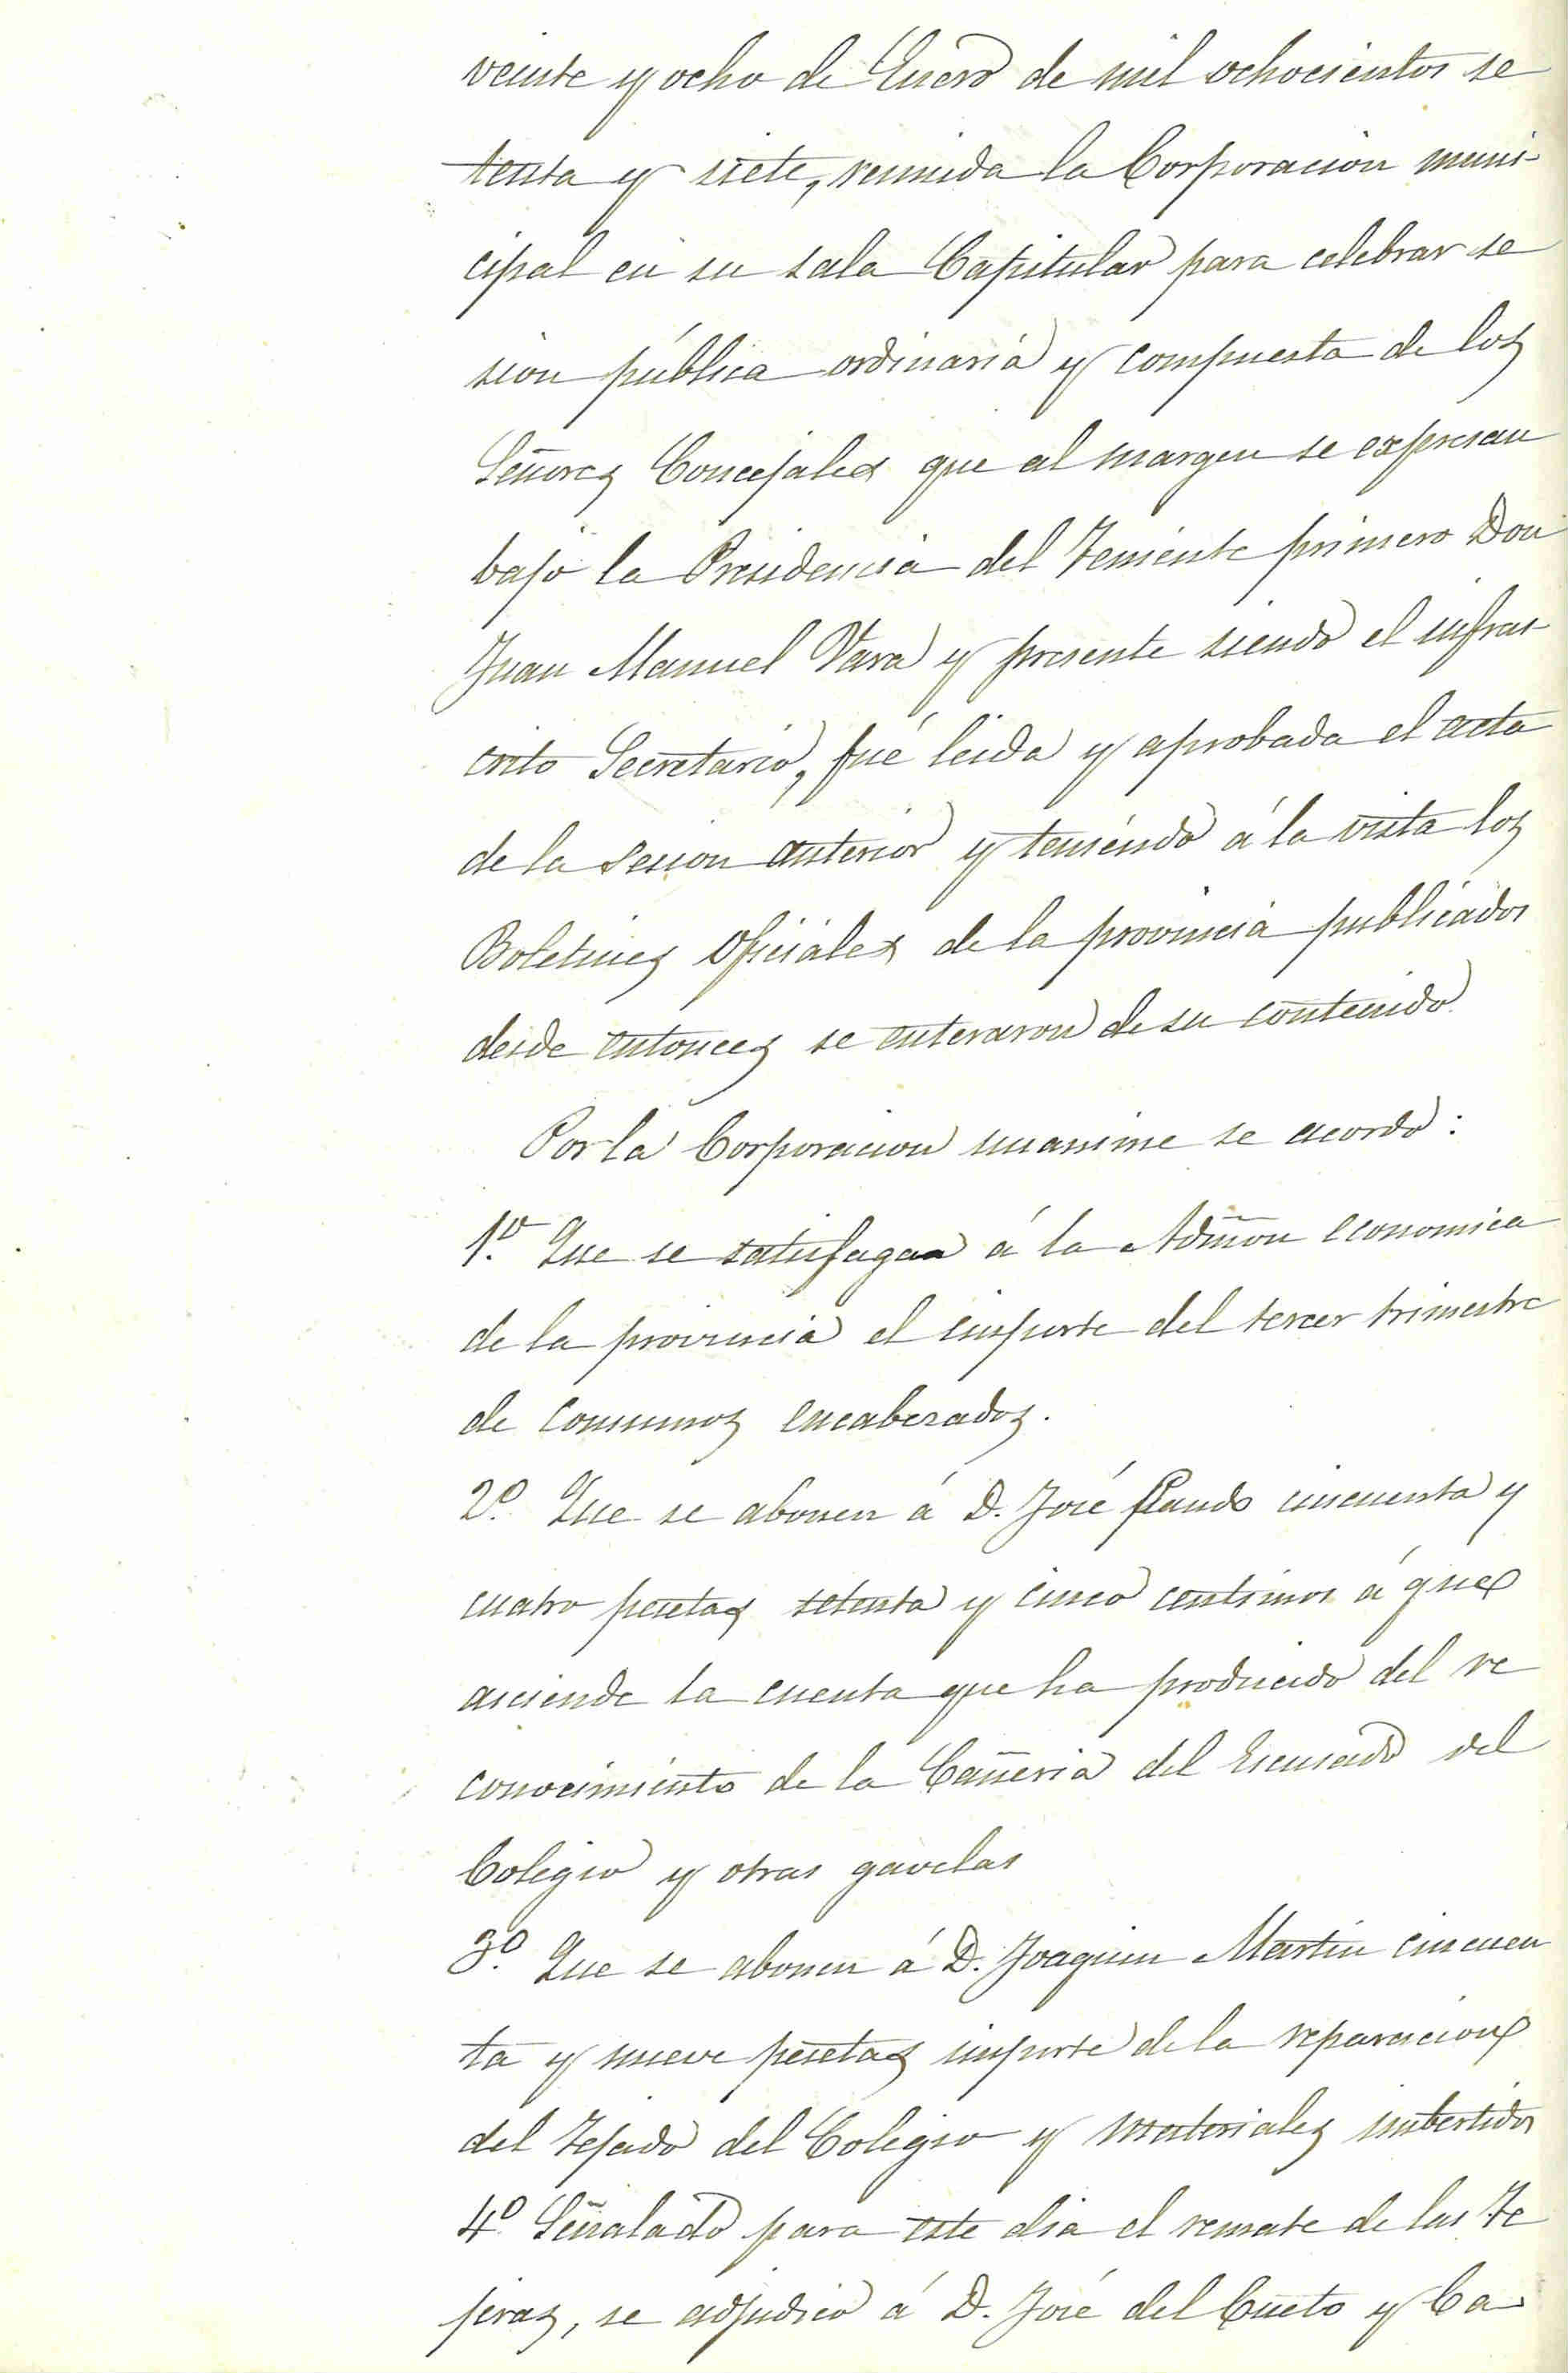 veinte y ocho de Enero de mil ochocientos se
tenta y siete, reunida la Corporacion muni-
cipal en su sala Capitular para celebrar se
sion pública ordinaria y compuesta de los
Señores Concejales que al margen se expresan
bajo la Presidencia del Teniente primero Don
Juan Manuel Vara y presente siendo el infras-
crito Secretario, fué leida y aprobada el acta
de la sesion anterior y teniendo á la vista los
Boletines Oficiales de la provincia publicados
desde entonces se enteraron de su contenido.
Por la Corporacion unanime se acordó:
1º. Que se satisfagan á la Admon economica
de la provincia el importe del tercer trimestre
de consumos encabezados.
2º. Que se abonen á D. José Pando cincuenta y
cuatro pesetas setenta y cinco centimos á que
asciende la cuenta que ha producido del re
conocimiento de la Cañeria del Escusado del
Colegio y otras gavelas
3º. Que se abonen á D. Joaquin Martin cincuen
ta y nueve pesetas importe de la reparacion
del Tejado del Colegio y materiales imbertidos
4º. Señalado para este dia el remate de las Te
jeras, se adjudicó á D. José del Cueto y Ca-